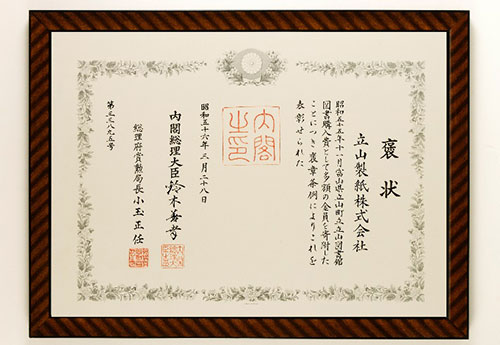 褒状
立山製紙株式会社
昭和五十五年十一月富山県立山町立立山図書館
図書購入費として多額の金員を寄附した
ことにつき褒章条例によりこれを
表彰せられた
昭和五十六年三月二十八日
内閣総理大臣鈴木善幸
総理府賞勲局長小玉正任
第三三八九五号
内閣之印